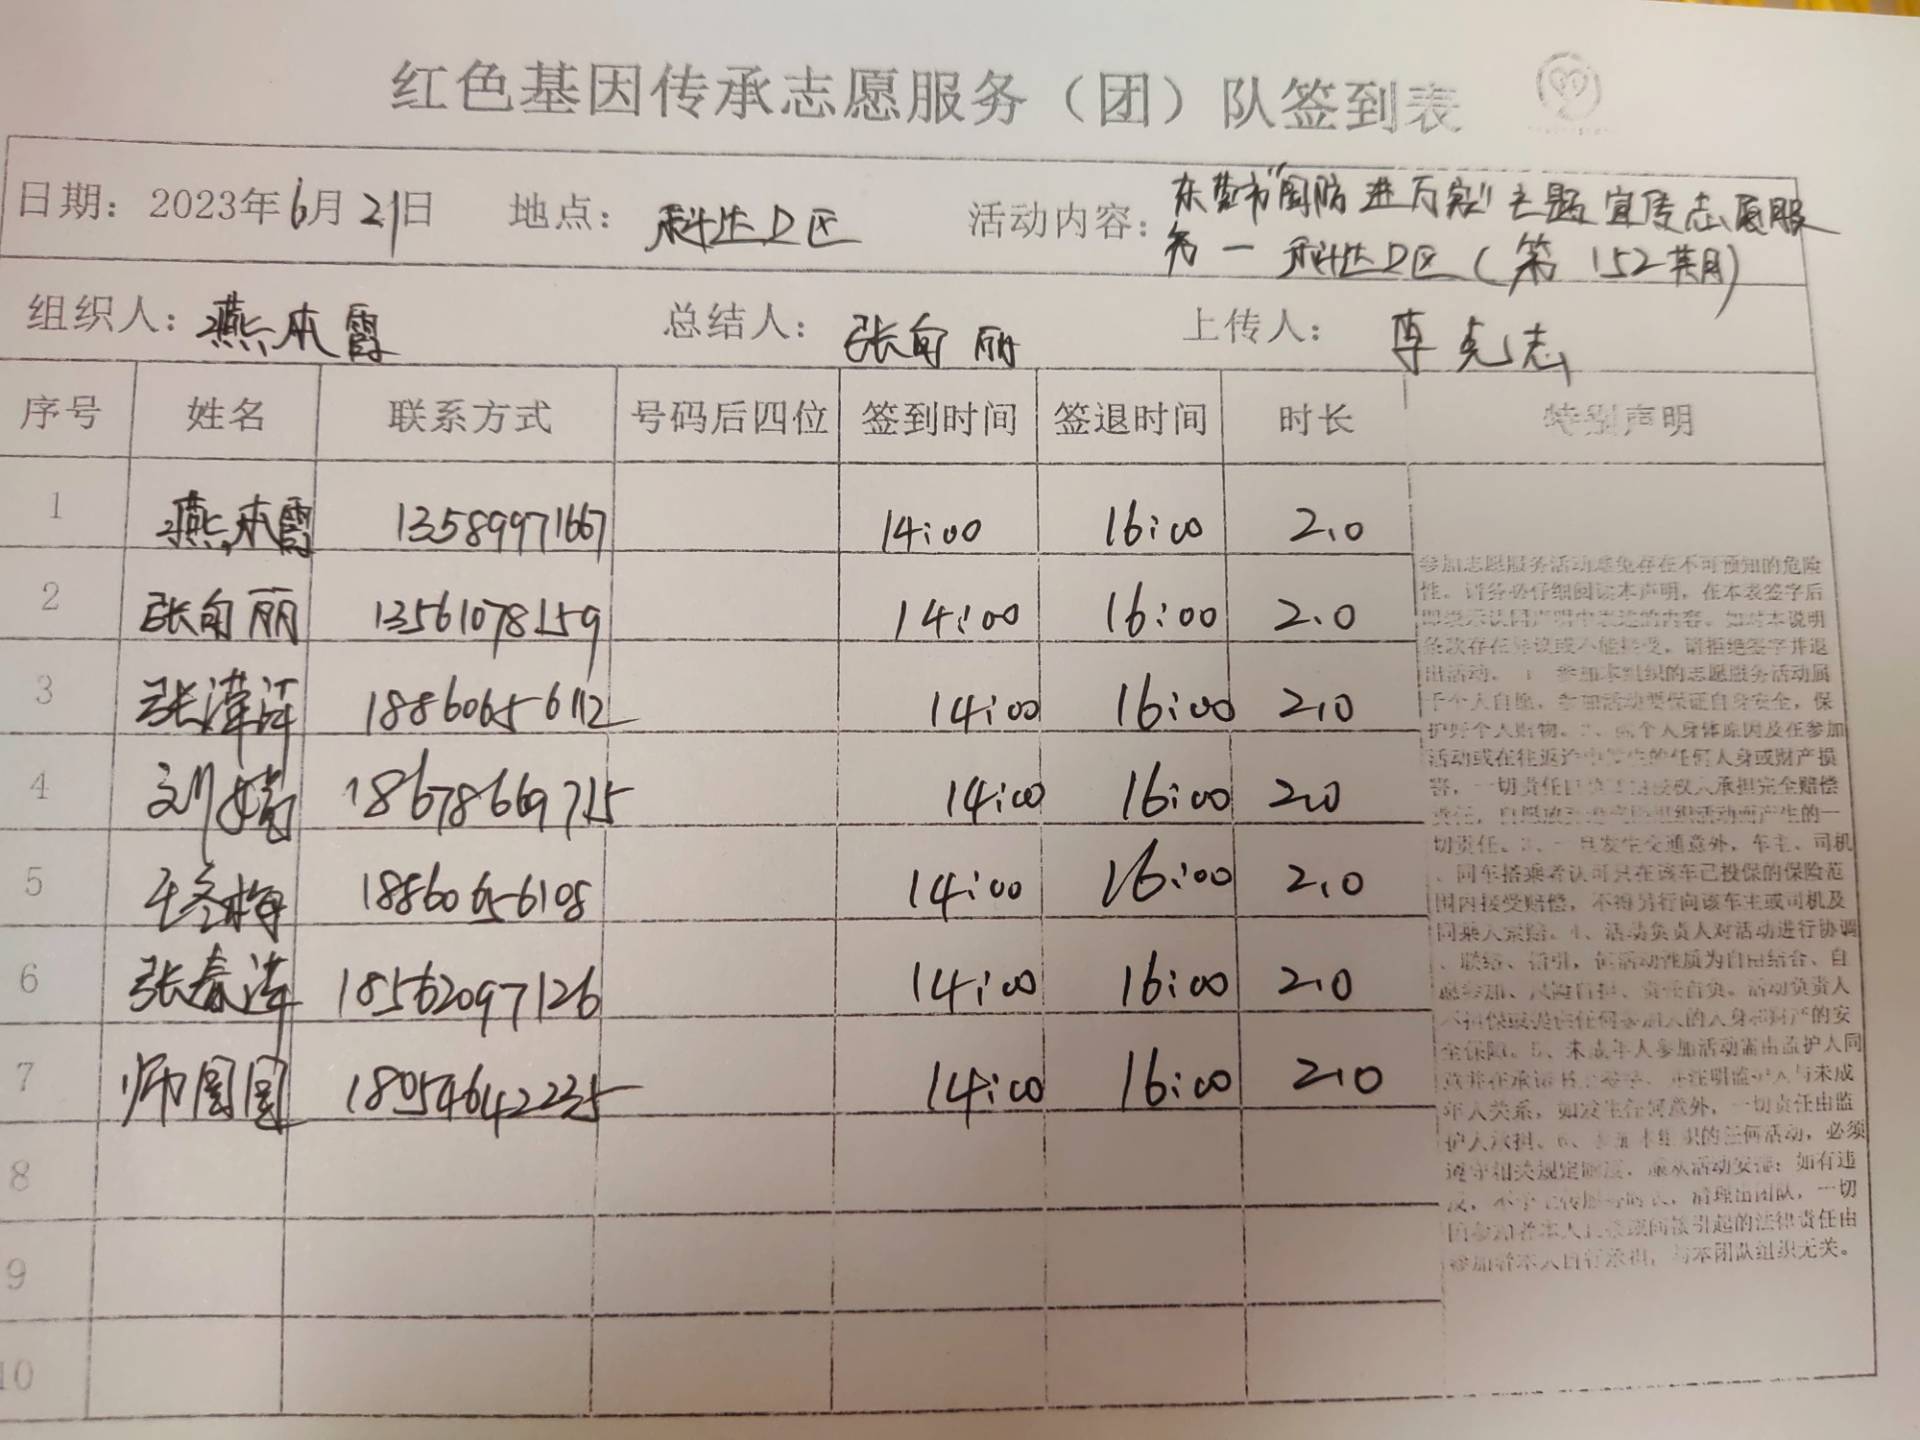 红色基因传承志愿服务（团）队签到表
日期：2023年6月21日 地点：科达D区 活动内容：东营市"国防进万家"主题宣传志愿服
务一科达D区（第152期）
组织人：燕本霞 总结人：张向丽 上传人：李克志
序号 姓名 联系方式 号码后四位 签到时间 签退时间 时长 特别声明
1 燕本霞 13589971667 14:00 16:00 2.0
2 张向丽 13561078159 14:00 16:00 2.0
3 张 18860656112 14:00 16:00 2.0
4 刘 18678669715 14:00 16:00 2.0
5 王冬梅 18860656108 14:00 16:00 2.0
6 张春涛 18562097126 14:00 16:00 2.0
7 师国国 18054642235 14:00 16:00 2.0
8
9
10
参加志愿服务活动难免存在不可预知的危险
性。请务必仔细阅读本声明，在本表签字后
即表示认同声明中表述的内容。如对本说明
条款存在异议或不能接受，请拒绝签字并退
出活动。1、参加本组织的志愿服务活动属
于个人自愿，参加活动要保证自身安全，保
护好个人财物。2、因个人身体原因及在参加
活动或在往返途中发生的任何人身或财产损
害，一切责任
责任，
切责任。3、一旦发生交通意外，车主、司机
、同车搭乘者认可只在该车已投保的保险范
围内接受赔偿，不得另行向该车车主或司机及
同乘人索赔。4、活动负责人对活动进行协调
、联络、指引，但活动性质为自由结合、自
愿参加、风险自担、责任自负。活动负责人
不担保或提供任何参加人的人身和财产的安
全保障。5、未成年人参加活动需由监护人同
意并在承诺书上签字，并注明监护人与未成
年人关系，如发生任何意外，一切责任由监
护人承担。6、参加本组织的任何活动，必须
遵守相关规定制度，服从活动安排；如有违
反，不予上传服务时长，清理出团队，一切
因参加者本人 引起的法律责任由
参加者本人自行承担，与本团队组织无关。